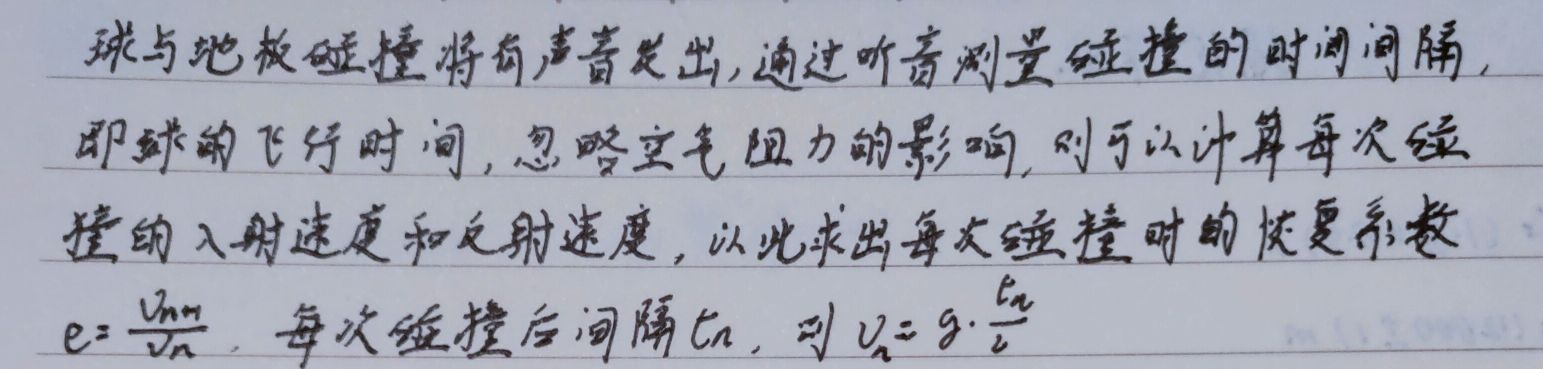 球与地板碰撞将有声音发出,通过听音测量碰撞的时间间隔,
即球的飞行时间,忽略空气阻力的影响,则可以计算每次碰
撞的入射速度和反射速度,以此求出每次碰撞时的恢复系数
e=\frac{v_{n+1}}{v_n}.每次碰撞后间隔t_n,则v_n=g·\frac{t_n}{2}